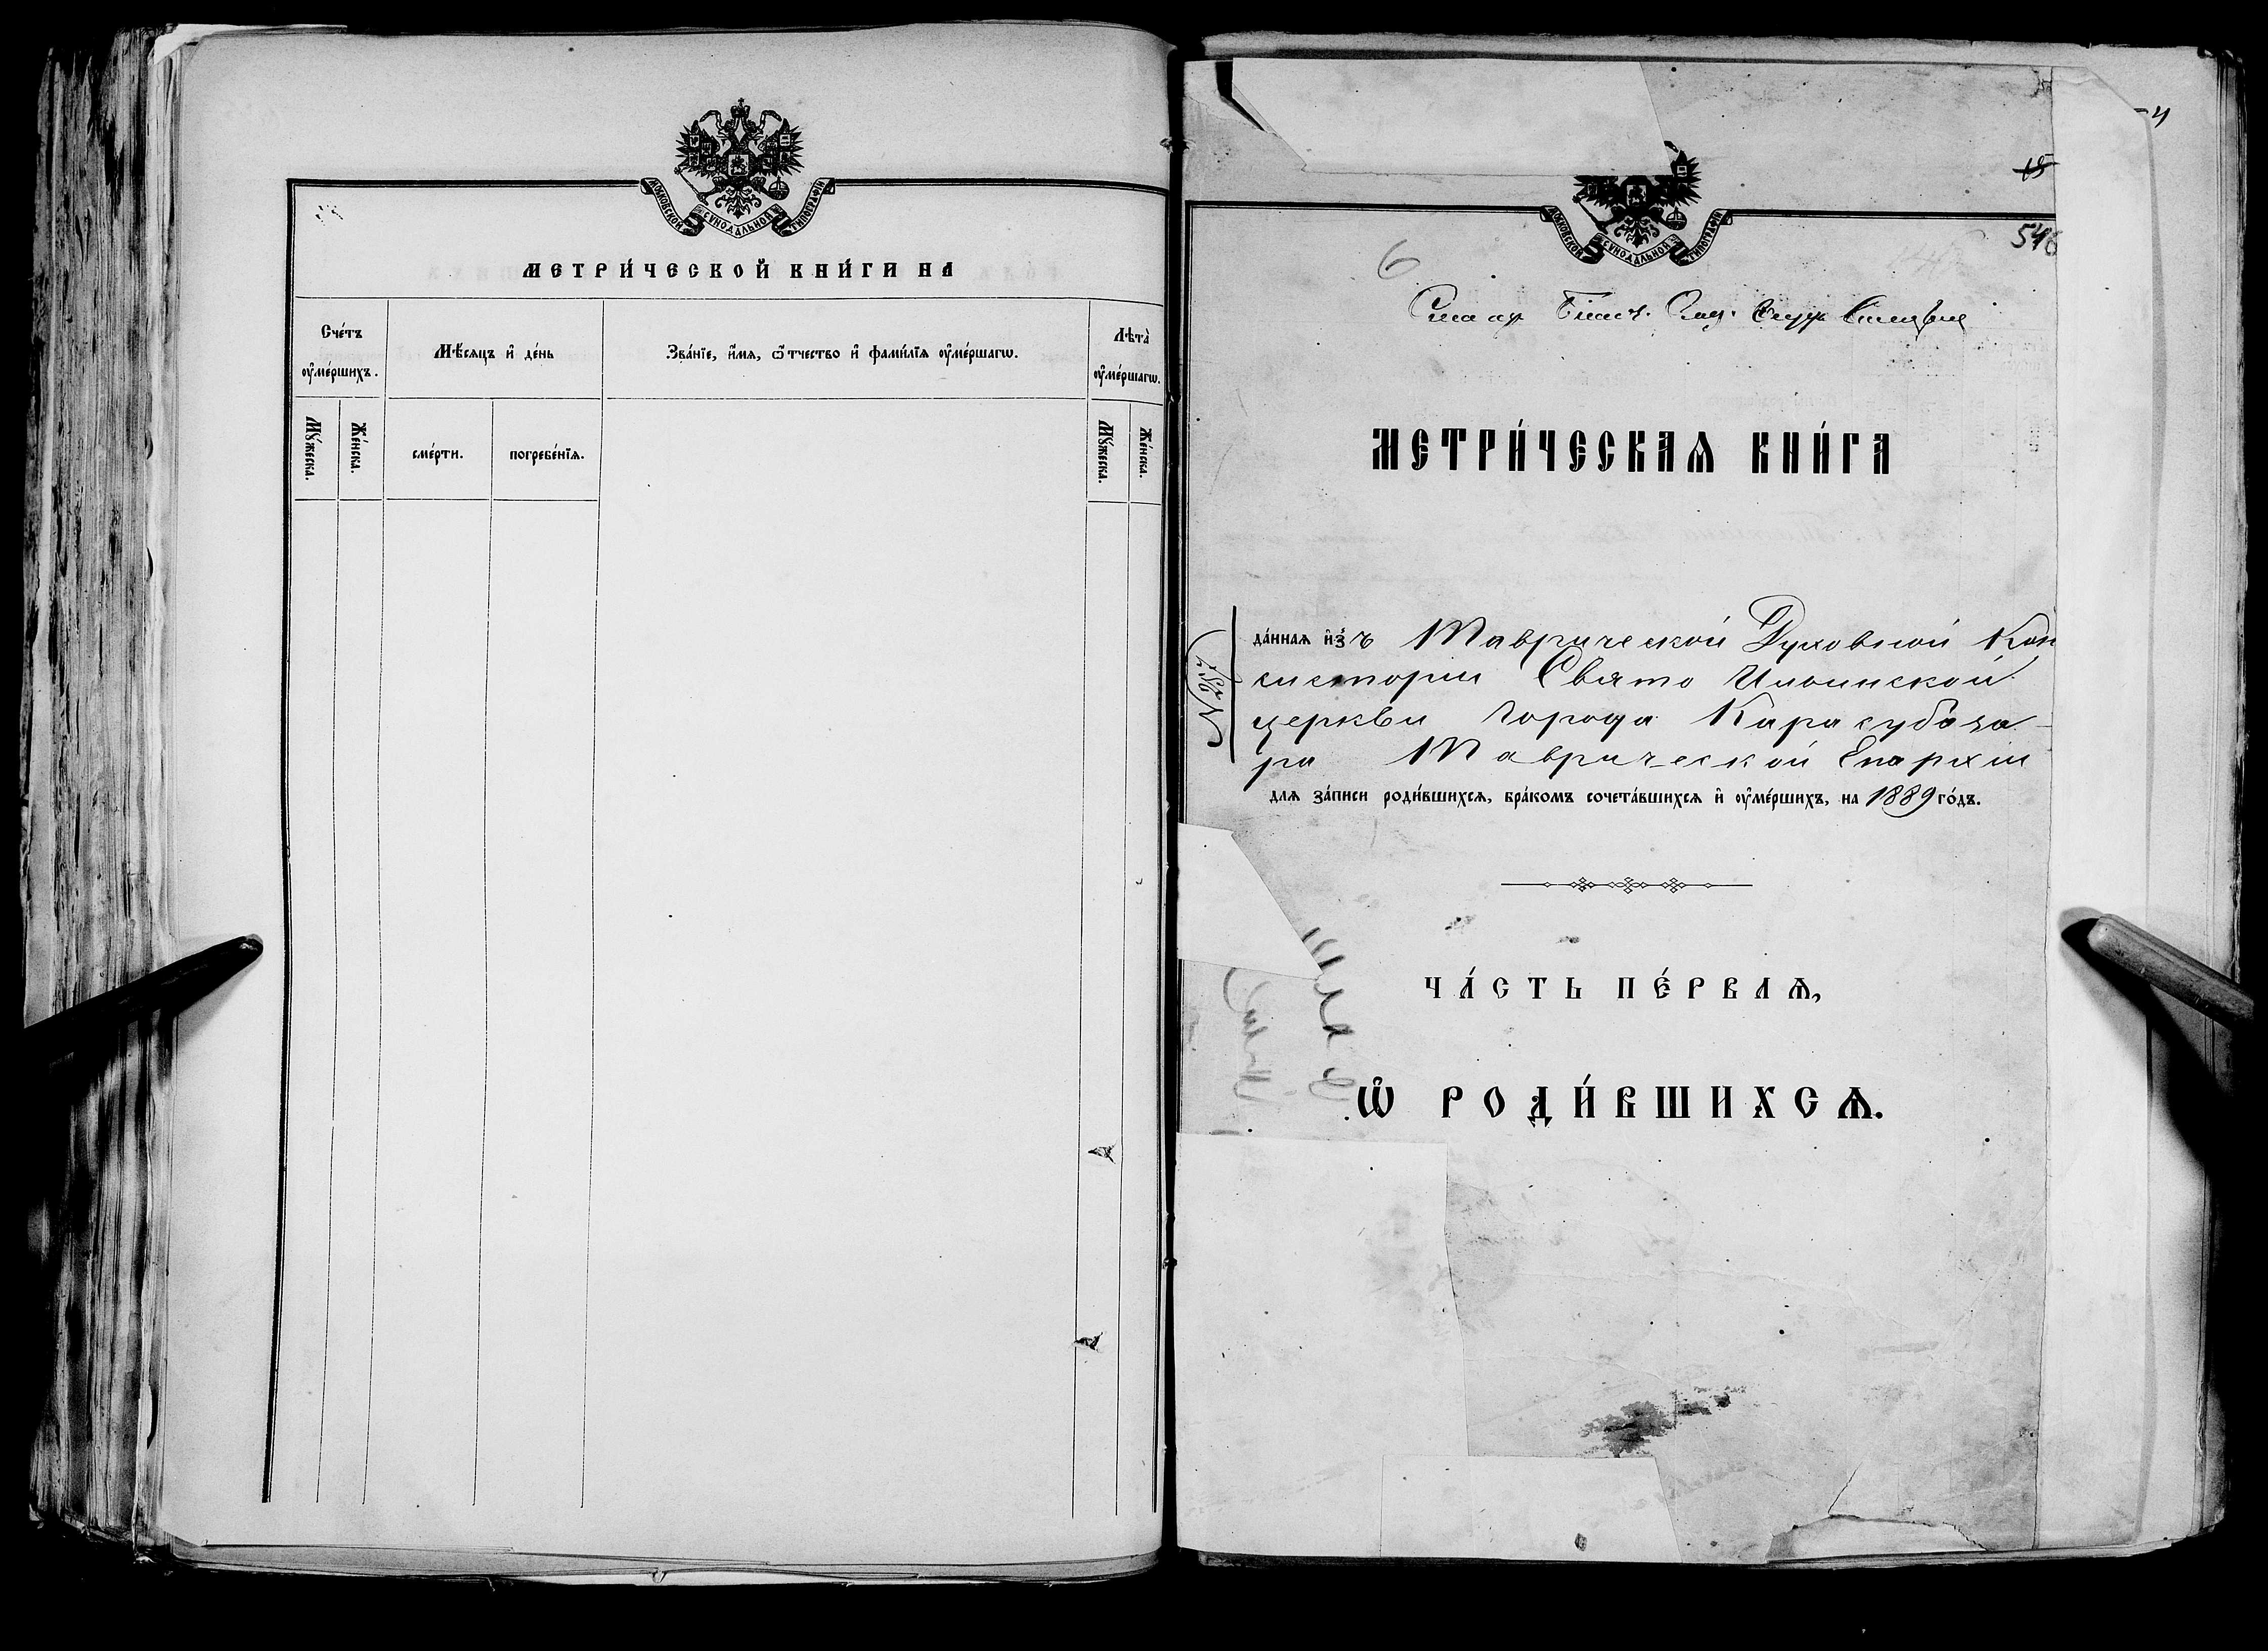 МОСКОВСКОЙ СѴНОДАЛЬНОЙ ТИПОГРАФІИ
МЕТРИ́ЧЕСКОЙ КНИ́ГИ НА
Сче́тъ ᲂу҆ме́ршихъ.
Мѣ́сяцъ и҆ де́нь
Зва́нїе, и҆́мѧ, ѿтчество и҆ фами́лїѧ ᲂу҆ме́ршагѡ.
Лѣта̀ ᲂу҆ме́ршагѡ.
Мꙋ́жеска.
Же́нска.
сме́рти.
погребе́нїѧ.
Мꙋ́жеска.
Же́нска.
4
15
МОСКОВСКОЙ СѴНОДАЛЬНОЙ ТИПОГРАФІИ
546
6
МЕТРИ́ЧЕСКАѦ КНИ́ГА
да́ннаѧ и҆з̾ъ Таврической Духовной Кон
систоріи Свято Ильинской
церкви города Карасубаза-
ра Таврической Епархіи
длѧ за́писи роди́вшихсѧ, бра́комъ сочета́вшихсѧ и҆ ᲂу҆ме́ршихъ, на 1889 го́дъ.
ЧА́СТЬ ПЕ́РВАѦ,
Ѡ҆ РОДИ́ВШИХСѦ.